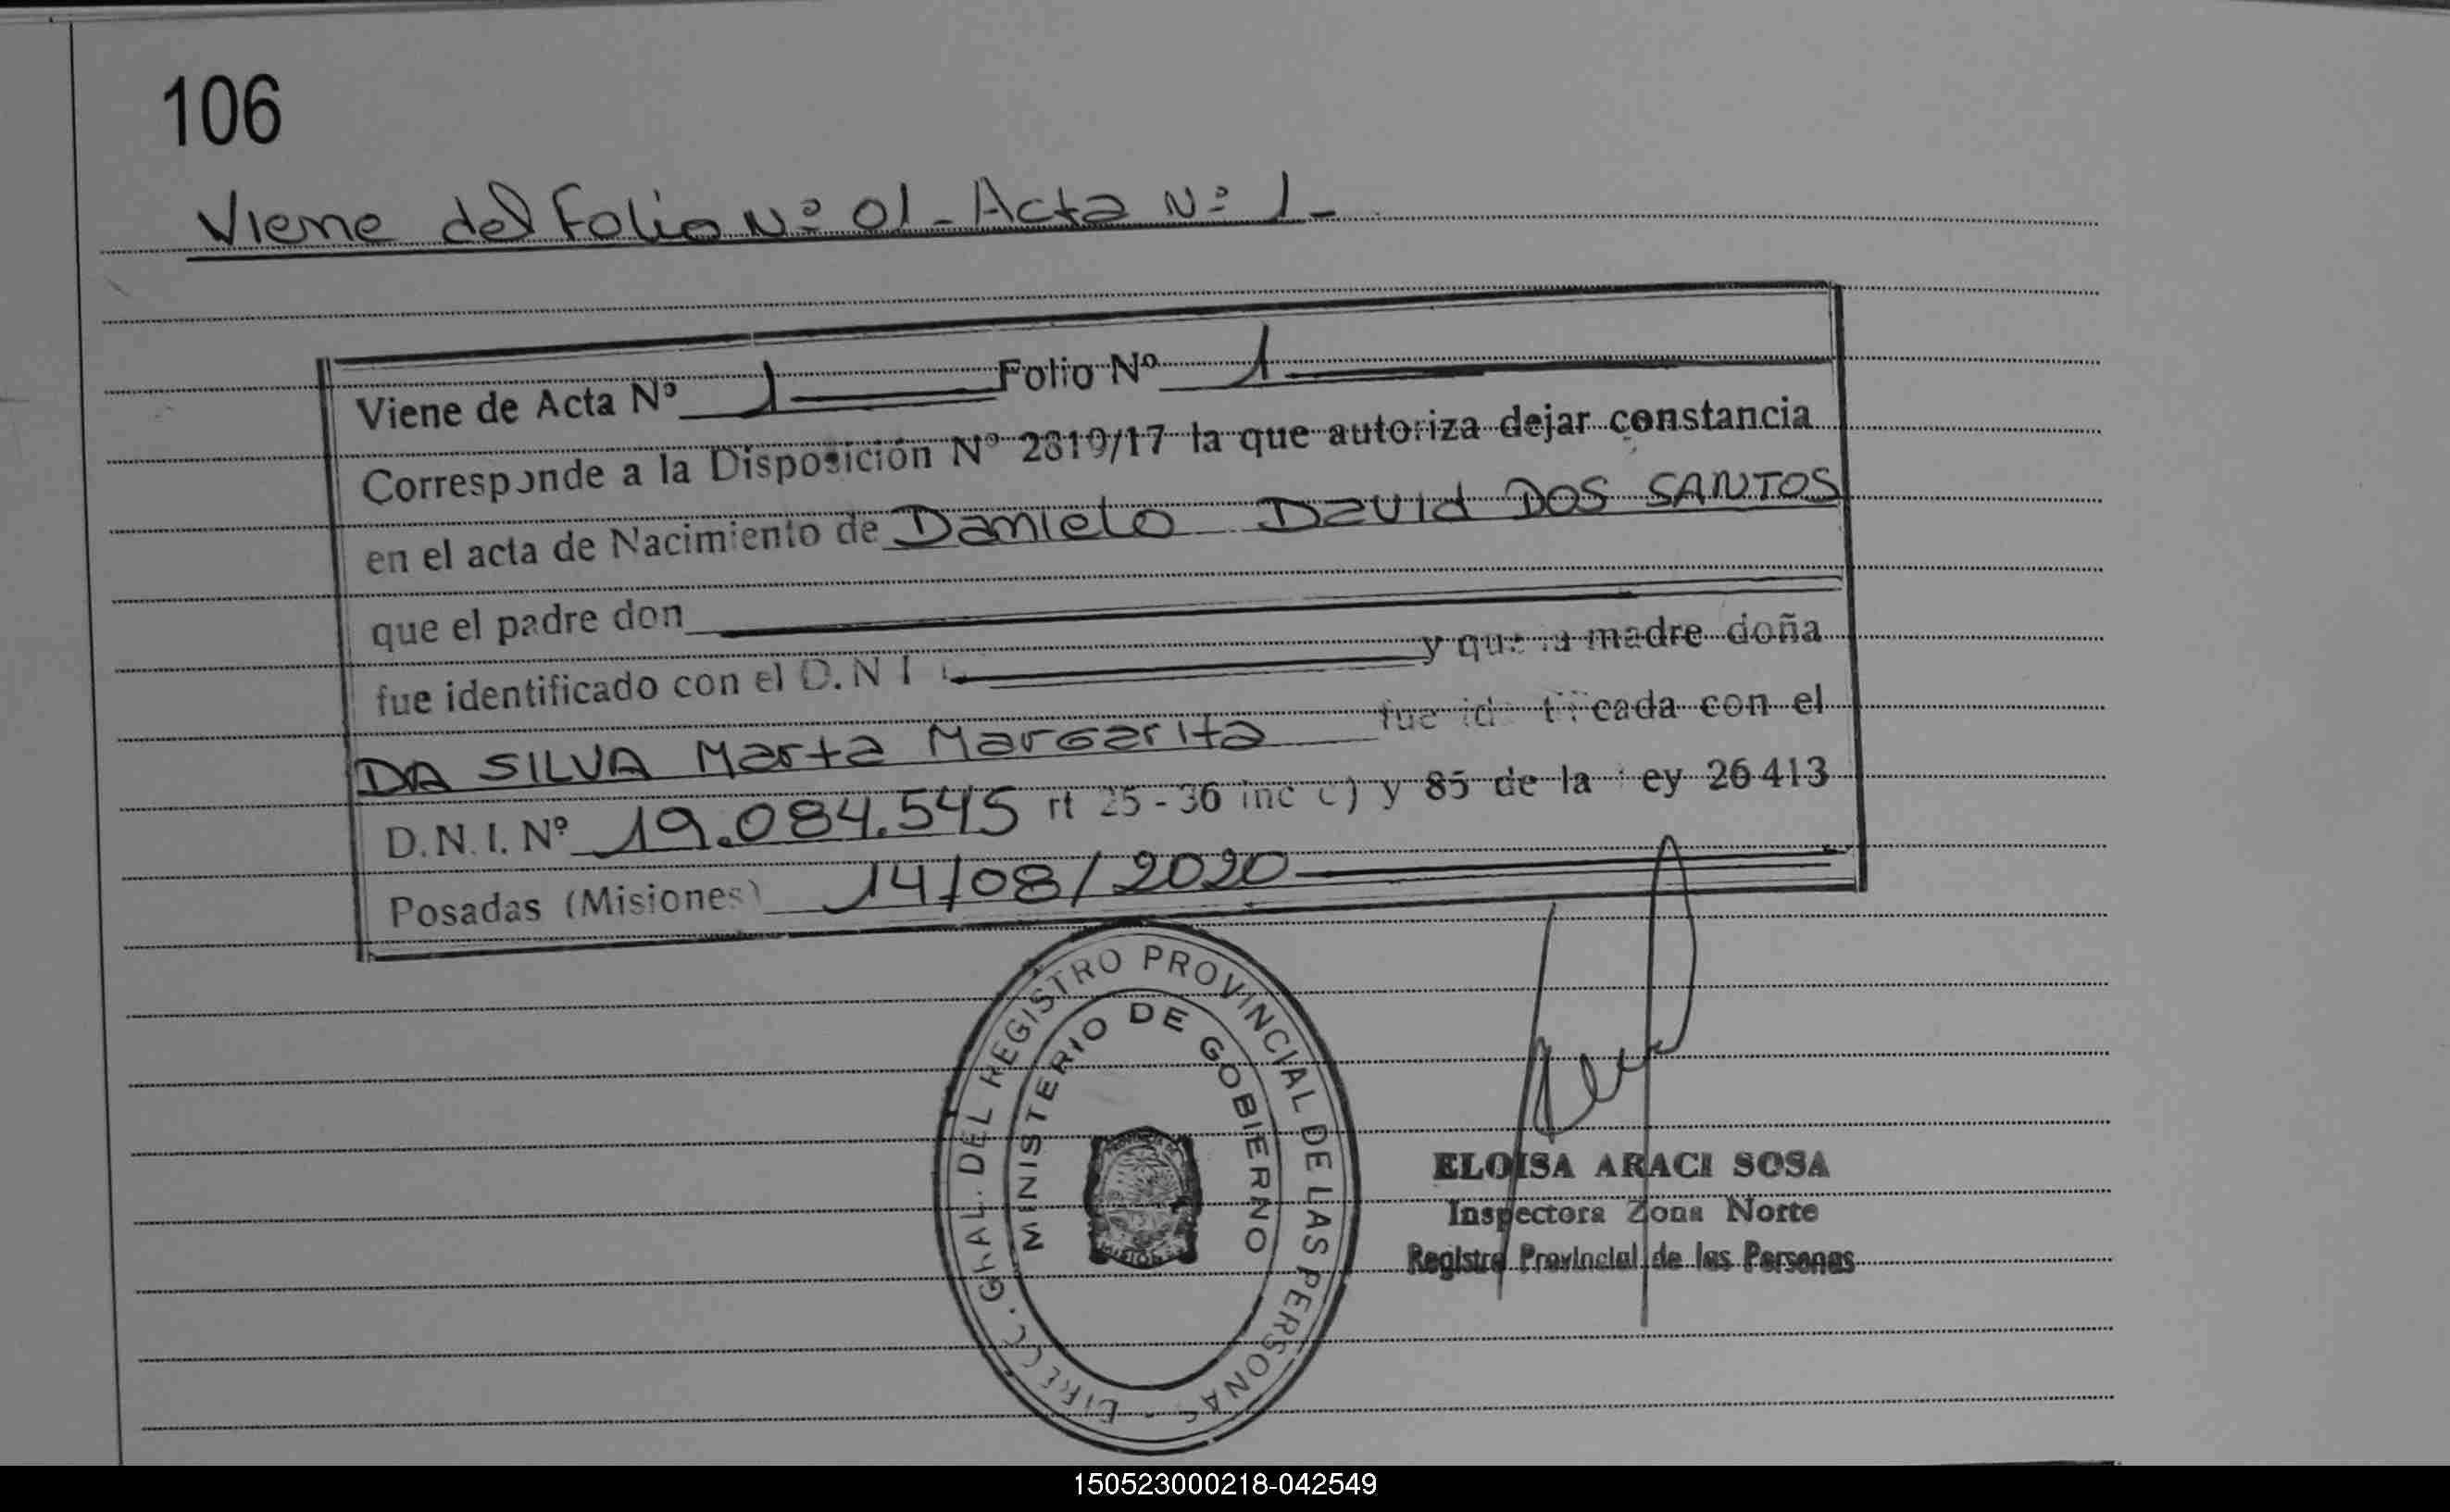 106
Viene del Folio Nº 01 - Acta Nº 1 -
Viene de Acta Nº 1 Folio Nº 1
Corresponde a la Disposición Nº 2819/17 la que autoriza dejar constancia
en el acta de Nacimiento de Danielo David DOS SANTOS
que el padre don
fue identificado con el D.N.I. y que la madre doña
DA SILVA Marta Margarita fue identificada con el
D.N.I. Nº 19.084.545 rt 25 - 36 inc c) y 85 de la ey 26413
Posadas (Misiones) 14/08/2020
DIRECC. GRAL. DEL REGISTRO PROVINCIAL DE LAS PERSONAS -
MINISTERIO DE GOBIERNO
MISIONES
ELOISA ARACI SOSA
Inspectora Zona Norte
Registro Provincial de las Personas
150523000218-042549